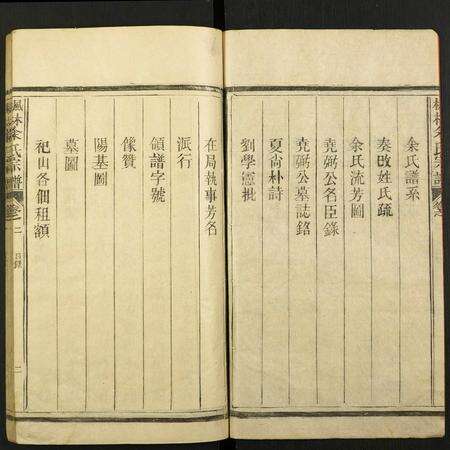 余氏譜系
奏改姓氏疏
余氏流芳圖
堯弼公名臣錄
堯弼公墓誌銘
夏尚朴詩
劉學憲批
在局執事芳名
派行
領譜字號
像贊
陽基圖
墓圖
祀山各佃租額
風林余氏宗譜 卷之二 目錄 二